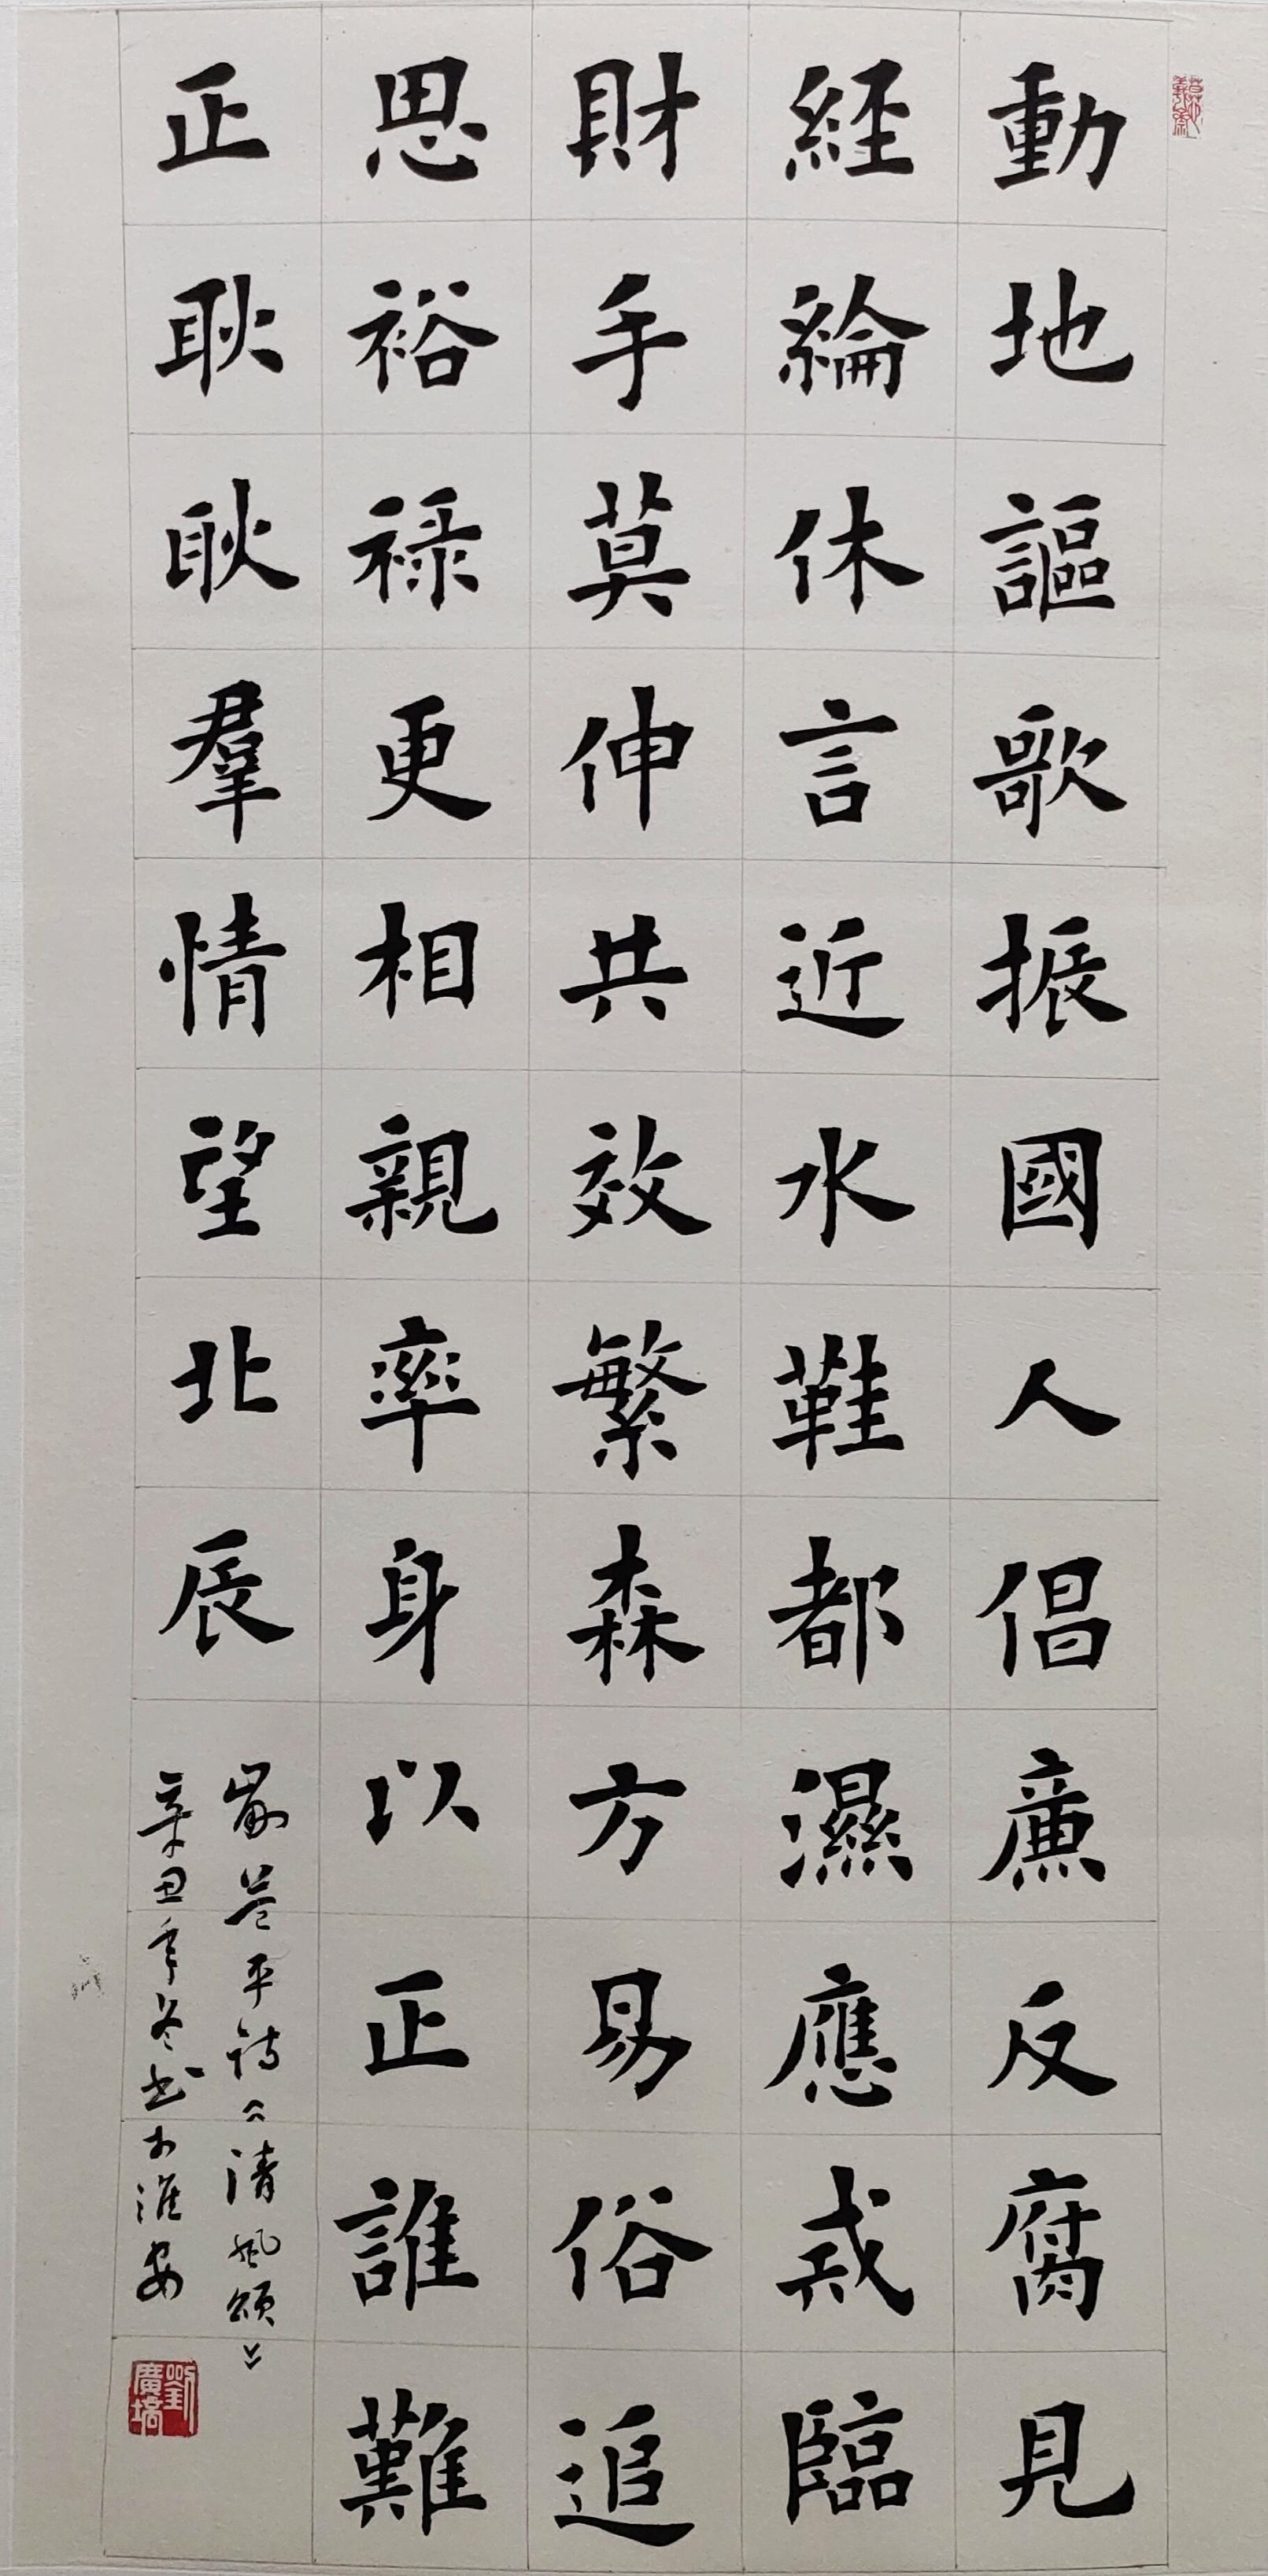 動地謳歌振國人倡廉反腐見
經綸休言近水鞋都濕應戒臨
財手莫伸共效繁森方易俗追
思裕禄更相親率身以正誰難
正耿耿羣情望北辰
平詩《清風頌》
辛丑年冬书於淮安
劉廣